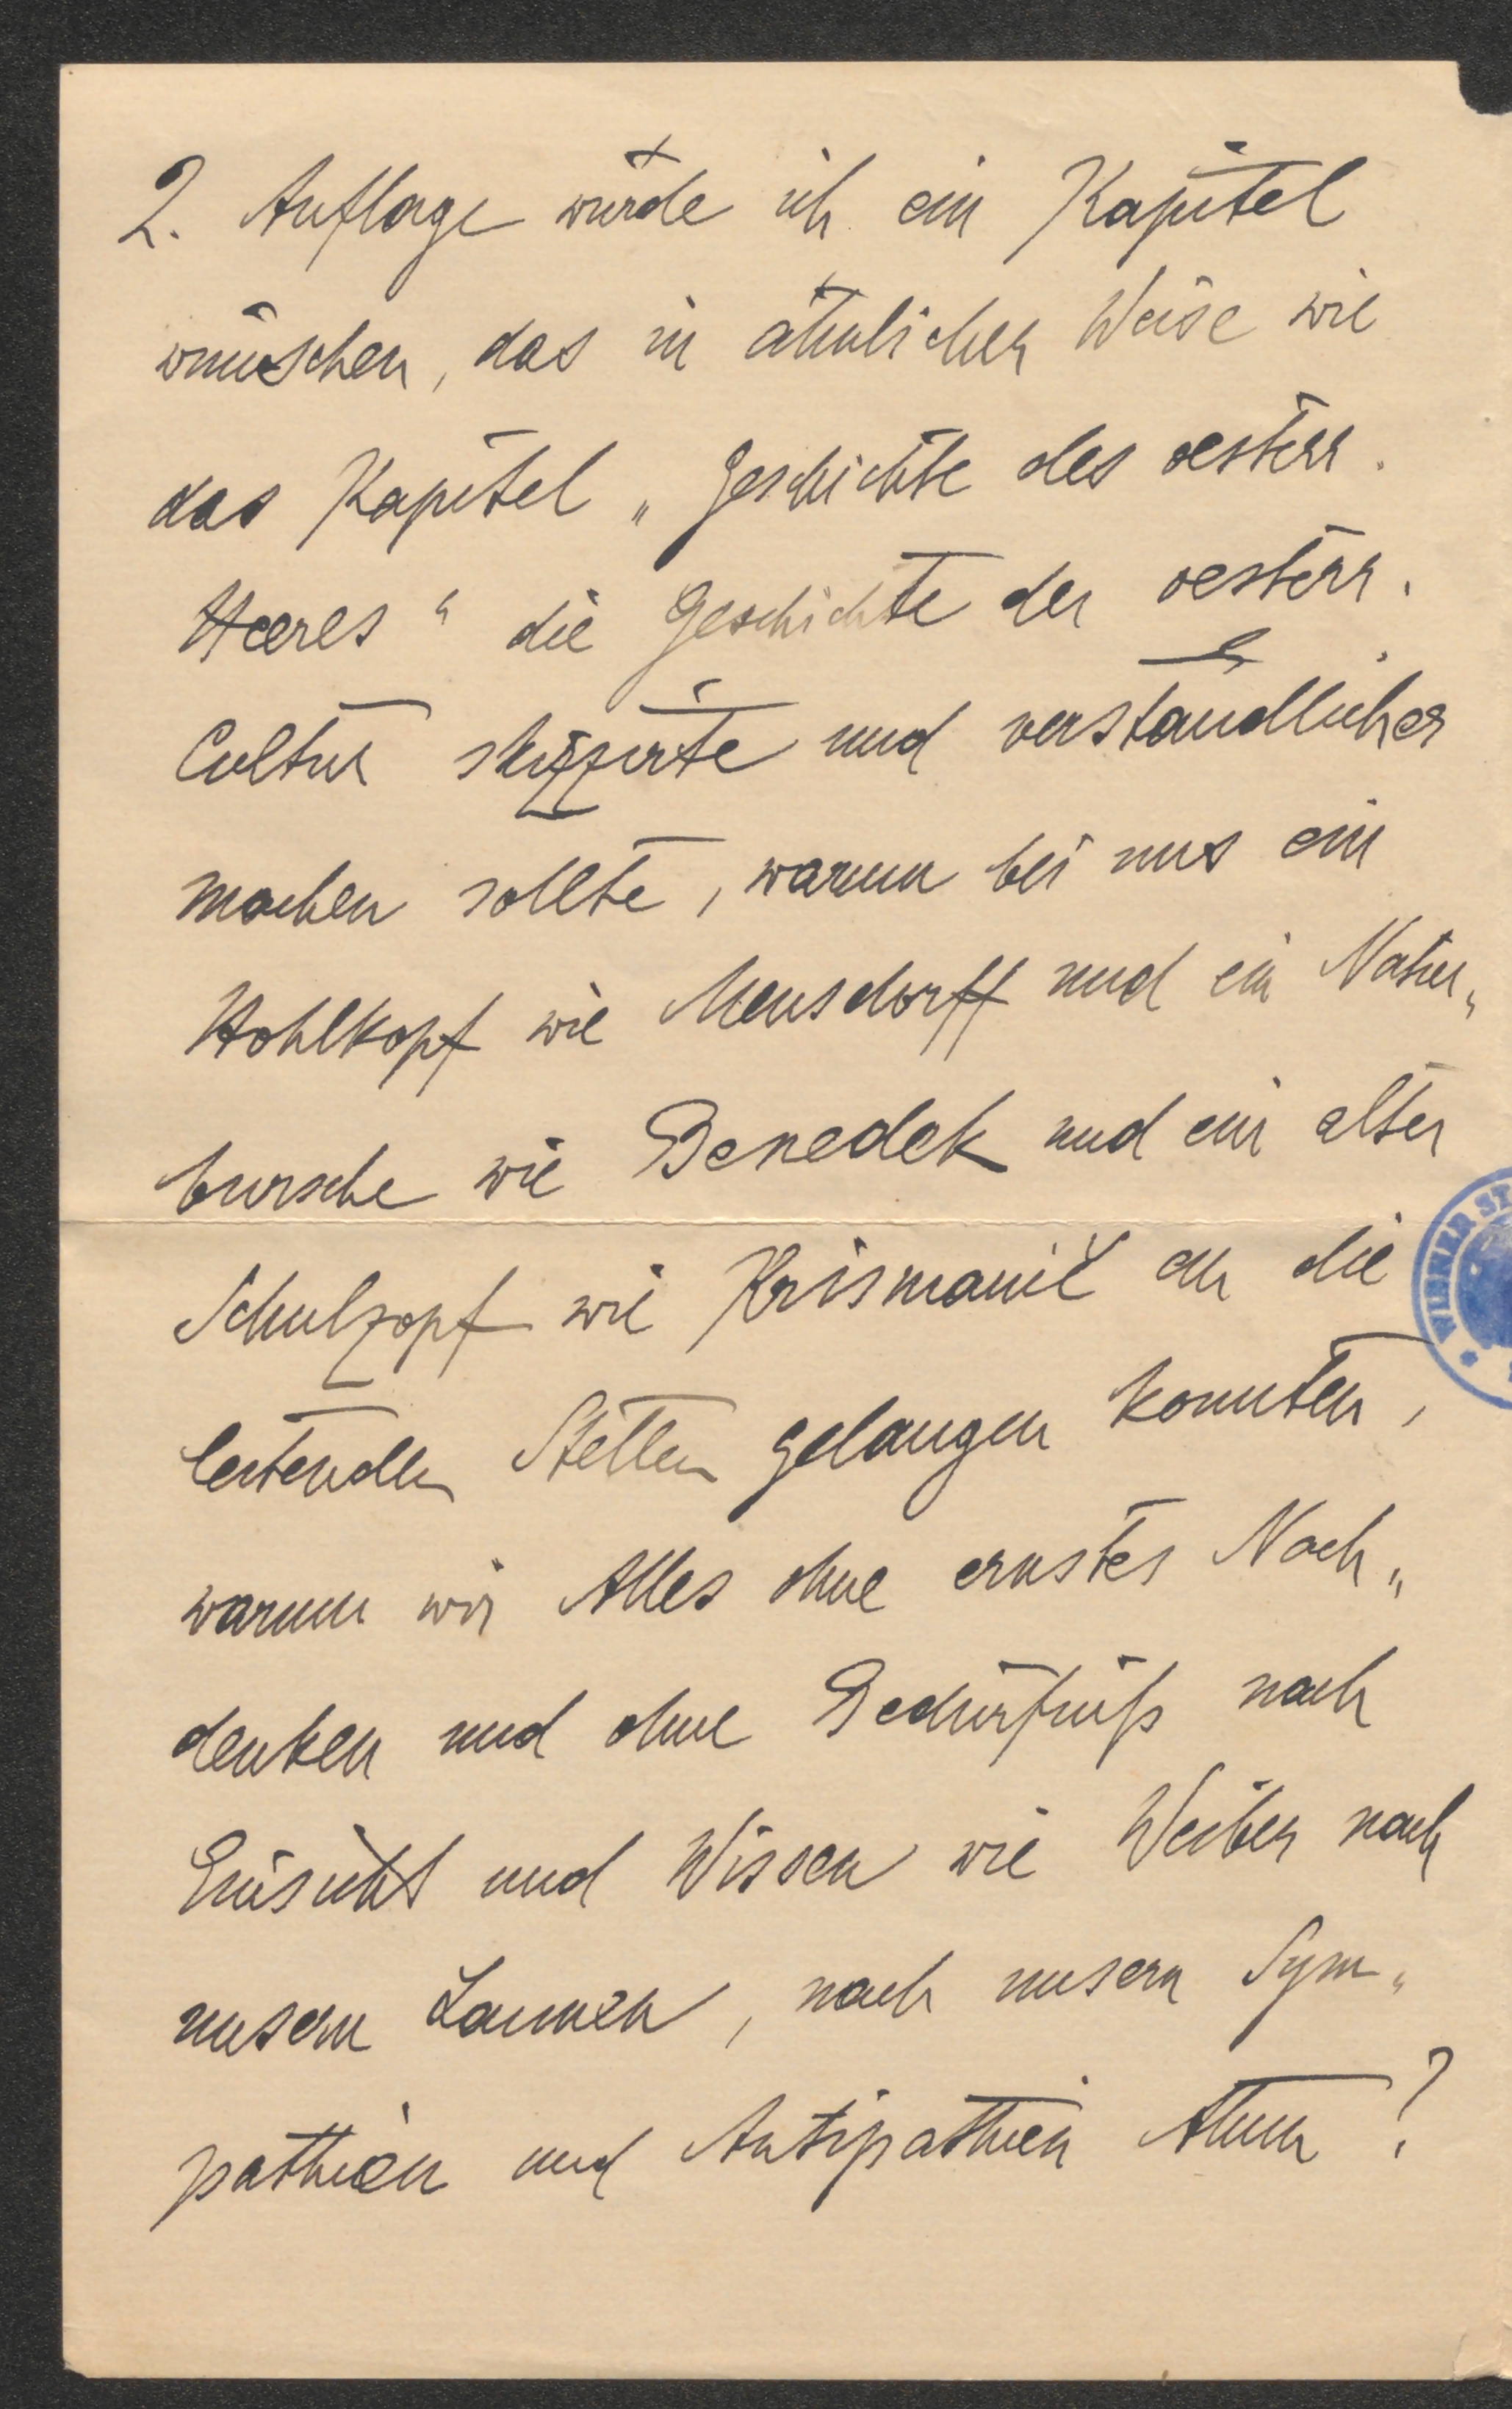 2. Auflage würde ich ein Kapitel
wünschen, das in ähnlicher Weise wie
das Kapitel „Geschichte des oesterr.
Heeres“ die Geschichte der oesterr.
Cultur skizzirte und verständlicher
machen sollte, warum bei uns ein
Hohlkopf wie Mensdorff und ein Natur„
bursche wie Benedek und ein alter
Schulzopf wie Krismanič an die
leitenden Stellen gelangen konnten,
warum wir Alles ohne ernstes Nach„
denken und ohne Bedürfniß nach
Einsicht und Wissen wie Weiber nach
unsern Launen, nach unsern Sym„
pathien und Antipathien thun?
WIENER ST